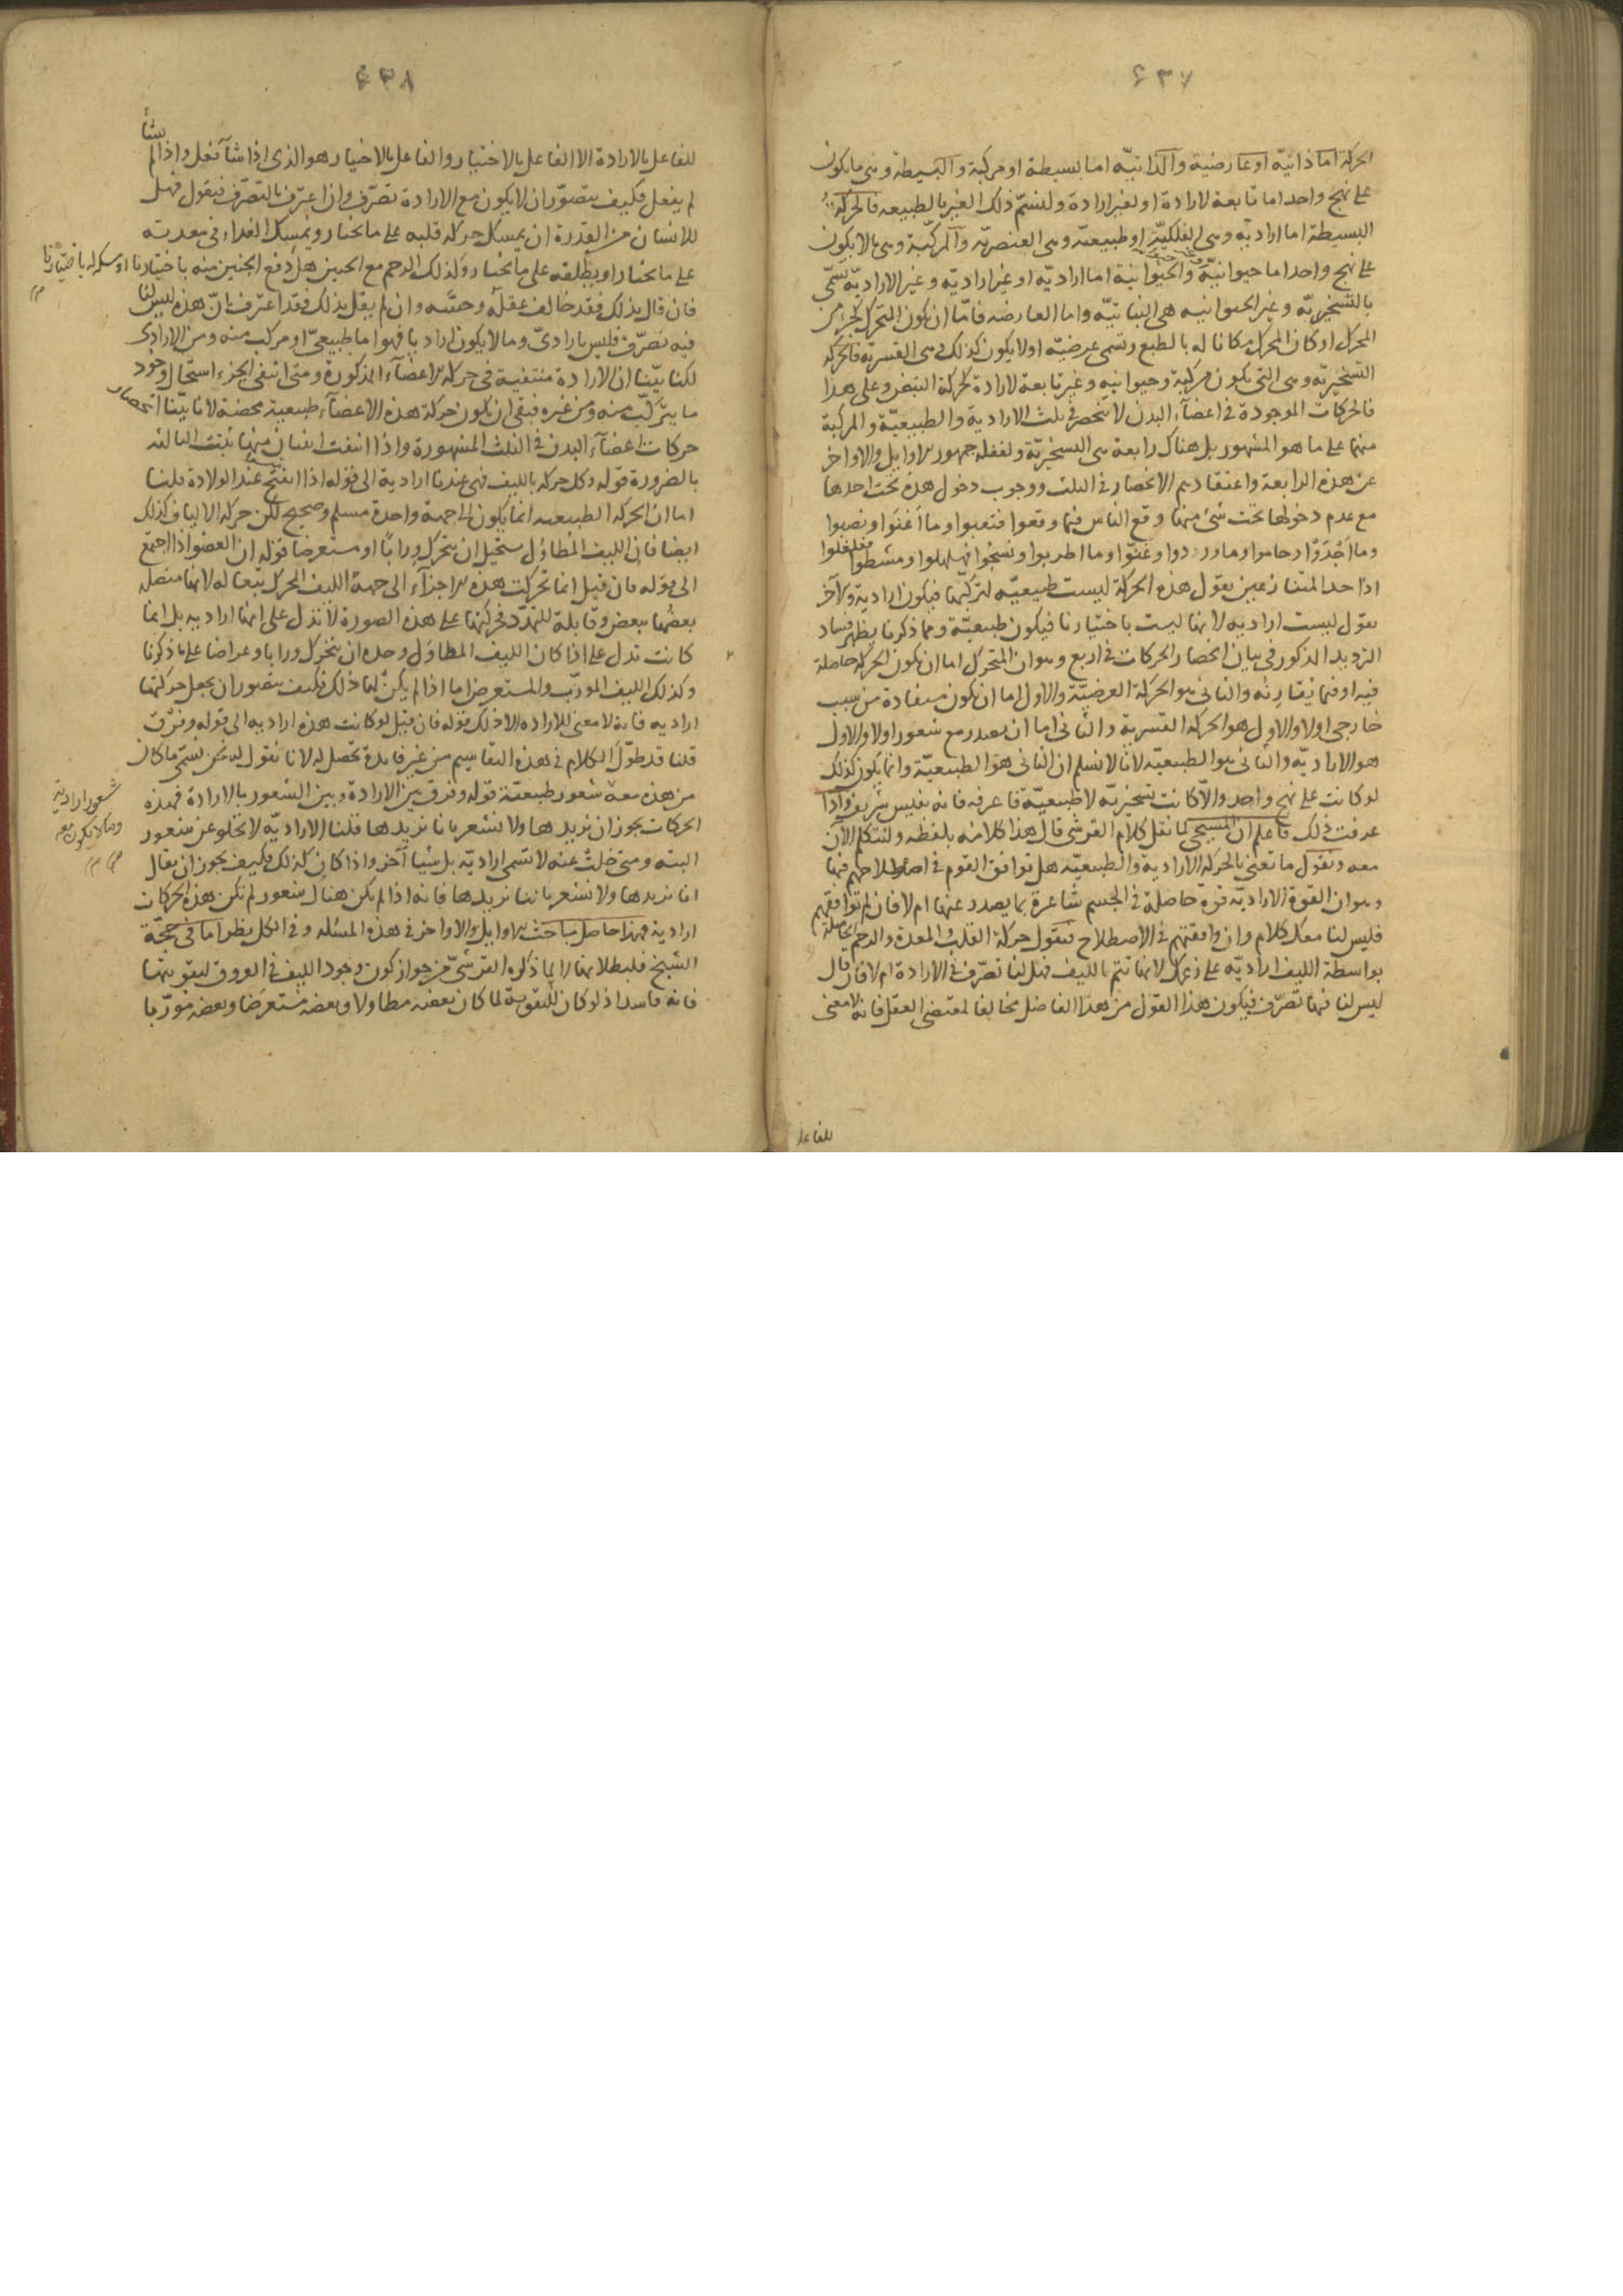 ٤٣٧
الحركة اما ذاتيّة او عارضية والذاتيّه اما بسيطة او مركبة والبسيطة وهى ما يكون
على نهج واحد اما تابعة لارادة او لغير ارادة ولنسمّ ذلك الغير بالطبيعه فالحركة
البسيطة اما اراديّه وهى الفلكيّة او طبيعيّه وهى العنصريّه والمركّبة وهى ما لا يكون
على نهج واحد اما حيوانيّة والحيوانية اما اراديّه او غير اراديّه وغير الاراديّه تسمّى
بالتسخيريّه وغير الحيوانيه هى النباتيّه واما العارضه فامّا ان يكون المتحرك كجزء من
المحرك او كان المحرك مكانا له بالطبع وتسمى عرضيّه او لا يكون كذلك فهى القسريّه فالحركة
التسخيريّه وهى التى يكون مركبة وحيوانيه وغير تابعة لارادة كحركة النبض وعلى هذا
فالحركات الموجودة فى اعضآء البدن لا تنحصر فى ثلث الاراديّة والطبيعيّة والمركبة
منهما على ما هو المشهور بل هناك رابعة هى التسخيريّة ولغفلة جمهور الاوايل والاواخر
عن هذه الرابعة واعتقادهم الانحصار فى الثلث ووجوب دخول هذه تحت احدها
مع عدم دخولها تحت شئ منها وقع الناس فيما وقعوا فتعبوا وما اغنوا ونصبوا
وما اجْدَوْا وحاموا وما وردوا وغنّوا وما اطربوا ونسجوا فهلهلوا ومشطوا ففلفلوا
اذ احد المتنازعين يقول هذه الحركة ليست طبيعيّه لتركّبها فيكون اراديّة والآخر
يقول ليست اراديه لانها ليست باختيارنا فيكون طبيعيّة ومما ذكرنا يظهر فساد
الترديد المذكور فى بيان انحصار الحركات فى اربع وهو ان المتحرك اما ان يكون الحركة حاصلة
فيه او فيما يقارنه والثانى هو الحركة العرضيّة والاول اما ان يكون مستفادة من سبب
خارجى اولا والاول هو الحركة القسرية والثانى اما ان يصدر مع شعور اولا والاول
هو الاراديّه والثانى هو الطبيعيّه لانا لا نسلم ان الثانى هو الطبيعيّة وانما يكون كذلك
لو كانت على نهج واحد والّا كانت تسخيريّه لا طبيعيّة فاعرفه فانه نفيس شريف واذا
عرفت ذلك فاعلم ان المسيحى لما نقل كلام القرشى قال هذا كلامه بلفظه ولنتكلم الآن
معه ونقول ما تعنى بالحركة الارادية والطبيعيّه هل توافق القوم فى اصطلاحهم فيها
وهو ان القوة الاراديّه قوة حاصلة فى الجسم شاعرة بما يصدر عنها ام لا فان لم توافقهم
فليس لنا معك كلام وان وافقتهم فى الاصطلاح فنقول حركة القلب والمعدة والرحم الحاصلة
بواسطة الليف اراديّه على زعمك لانها تتم بالليف فهل لنا تصرّف فى الارادة ام لا فان قال
ليس لنا فيها تصرّف فيكون هذا القول من هذا الفاضل مخالفا لمقتضى العقل فانه لا معنى
للفاعل
٤٣٨
للفاعل بالارادة الا الفاعل بالاختيار والفاعل بالاختيار هو الذى اذا شآء فعل واذا لم يشأ
لم يفعل فكيف يتصوّر ان لا يكون مع الارادة تصرّف وان اعترف بالتصرّف فنقول فهل
للانسان من القدرة ان يمسك حركة قلبه على ما يختار ويمسك الغذاء فى معدته
على ما يختار او يطلقه على ما يختار وكذلك الرحم مع الجنين هل دفع الجنين منه باختيارنا او مسكه له باختيارنا
فان قال بذلك فقد خالف عقله وحسّه وان لم يقل بذلك فقد اعترف بانّ هذه ليس لنا
فيه تصرّف فليس بارادىّ وما لا يكون اراديا فهو اما طبيعىّ او مركب منه ومن الارادى
لكنا بيّنا ان الارادة منتفية فى حركة الاعضآء المذكورة ومتى انتفى الجزء استحال وجود
ما يتركّب منه ومن غيره فبقى ان يكون حركة هذه الاعضآء طبيعية محضة لانا بيّنا انحصار
حركات اعضآء البدن فى الثلث المشهورة واذا انتفت اثنان منها ثبتت الثالثة
بالضرورة قوله وكل حركة بالليف فهى عندنا ارادية الى قوله اذا انفتح عند الولادة قلنا
اما ان الحركة الطبيعيه انما يكون الى جهة واحدة مسلم وصحيح لكن حركة الالياف كذلك
ايضا فان الليف المطاول يستحيل ان يتحرك ورابا او مستعرضا قوله ان العضو اذا اجتمع
الى قوله فان قيل انما تحركت هذه الاجزآء الى جهة الليف المحرك تبعا له لانها متصلة
بعضها ببعض وقابلة للتمدّد فحركتها على هذه الصورة لا تدل على انها اراديه بل انما
كانت تدل على اذا كان الليف المطاول وحده ان يتحرك ورابا وعراضا على ما ذكرنا
وكذلك الليف المورّب والمستعرض اما اذا لم يكن لها ذلك فكيف يتصور ان يجعل حركتها
اراديه فانه لا معنى للاراده الا ذلك قوله فان قيل لو كانت هذه اراديه الى قوله وفرْق
قلنا قد طوّل الكلام فى هذه التقاسيم من غير فائدة تحصل له لانا نقول له نحن نسمّى ما كان
من هذه معه شعور طبيعيّة قوله وفرق بين الارادة وبين الشعور بالارادة فهذه
الحركات يجوز ان نريدها ولا نشعر بانا نريدها قلنا الاراديّه لا تخلو عن شعور
البته ومتى خلت عنه لا تسمى اراديّه بل شيئا آخر واذا كان كذلك فكيف يجوز ان يقال
انا نريدها ولا نشعر باننا نريدها فانه اذا لم يكن هناك شعور لم تكن هذه الحركات
ارادية فهذا حاصل مباحث الاوايل والاواخر فى هذه المسئلة وفى الكل نظر اما فى حجّة
الشيخ فلبطلانها لا لما ذكره القرشىّ من جواز كون وجود الليف فى العروق لتقويتها
فانه فاسد اذ لو كان للتقوية لما كان بعضه مطاولا وبعضه مستعرضا وبعضه مورّبا
شعور ارادية
وما لا يكون معه